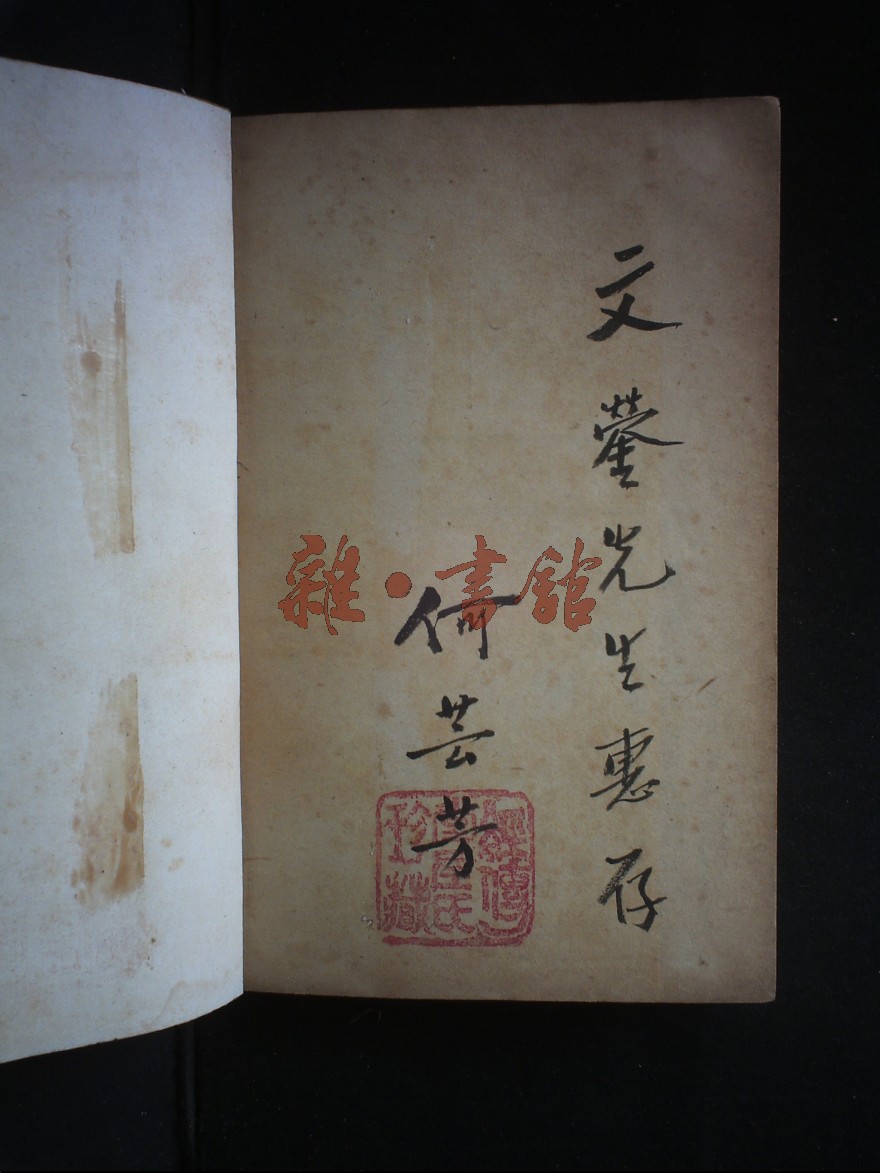 文蓥先生惠存
何芸芳
雜·書館
珍藏